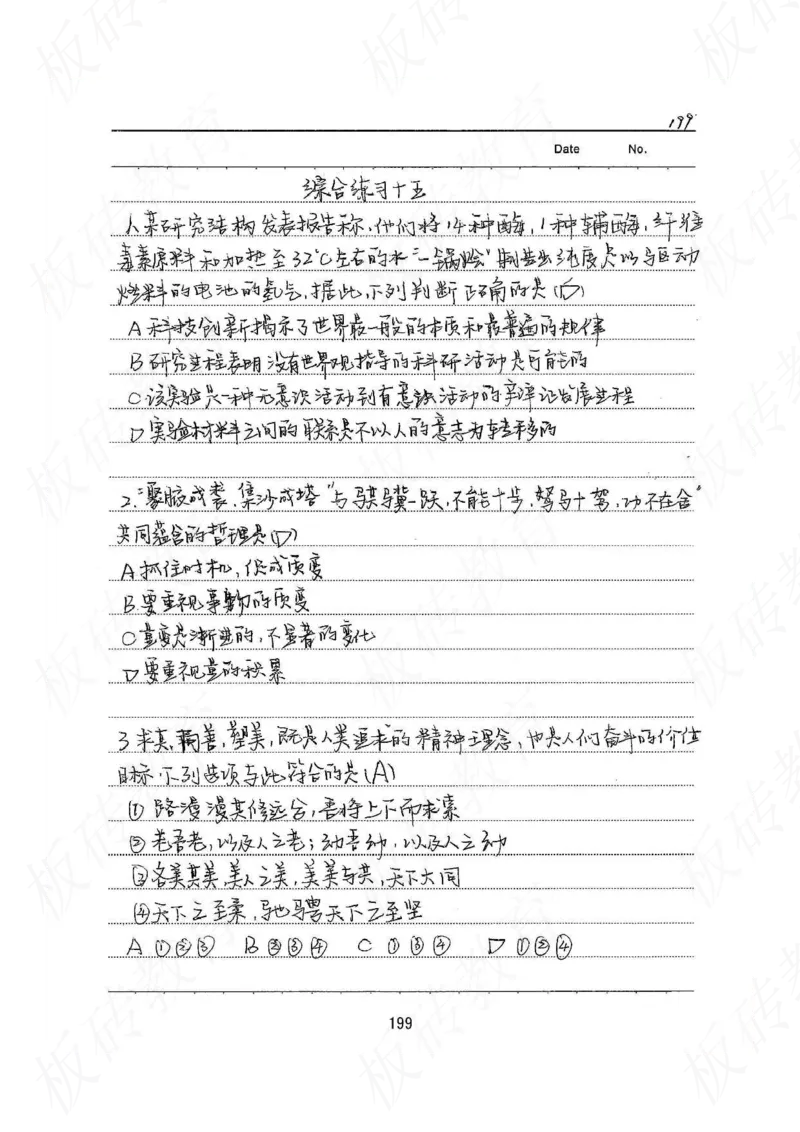 199
Date No.
综合练习十五
1.某研究结构发表报告称,他们将14种酶,1种辅酶,纤维
毒素原料和加热至32℃左右的水"一锅烩"制造出纯度足以马区动
燃料的电池的氢气,据此,下列判断正确的是(D)
A 科技创新揭示了世界最一般的本质和最普遍的规律
B 研究进程表明没有世界观指导的科研活动是可能的
C 该实验是一种无意识活动到有意识活动的辛辛证发展进程
D 实验材料之间的联系是不以人的意志为转移的
2."聚腋成裘,集沙成塔"与骐骥一跃,不能十步,驽马十驾,功不在舍"
共同蕴含的哲理是(D)
A 抓住时机,促成质变
B.要重视事物的质变
C 量变是渐进的,不显著的变化
D 要重视量的积累
3 求真,善,塑美,既是人类追求的精神理念,也是人们奋斗的价值
目标.下列选项与此符合的是(A)
① 路漫漫其修远兮,吾将上下而求索
② 老吾老,以及人之老;幼吾幼,以及人之幼
③各美其美,美人之美,美美与共,天下大同
④天下之至柔,驰骋天下之至坚
A ①②③ B ②③④ C ①③④ D ①②④
199
板砖教育